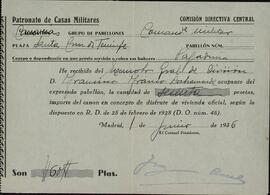 Patronato de Casas Militares
COMISIÓN DIRECTIVA CENTRAL
Canarias GRUPO DE PABELLONES Comand. militar
PLAZA Santa Cruz de Tenerife PABELLÓN NÚM.
Cuerpo o dependencia en que presta servicio o cobra sus haberes
He recibido del Gral de División
D. Francisco Franco Bahamonde ocupante del
expresado pabellón, la cantidad de sesenta pesetas,
importe del canon en concepto de disfrute de vivienda oficial, según lo
dispuesto en R. D. de 25 de febrero de 1928 (D. O. núm. 46).
Madrid, 1 de Junio de 1936
El Coronel Presidente,
Son 60 Ptas.